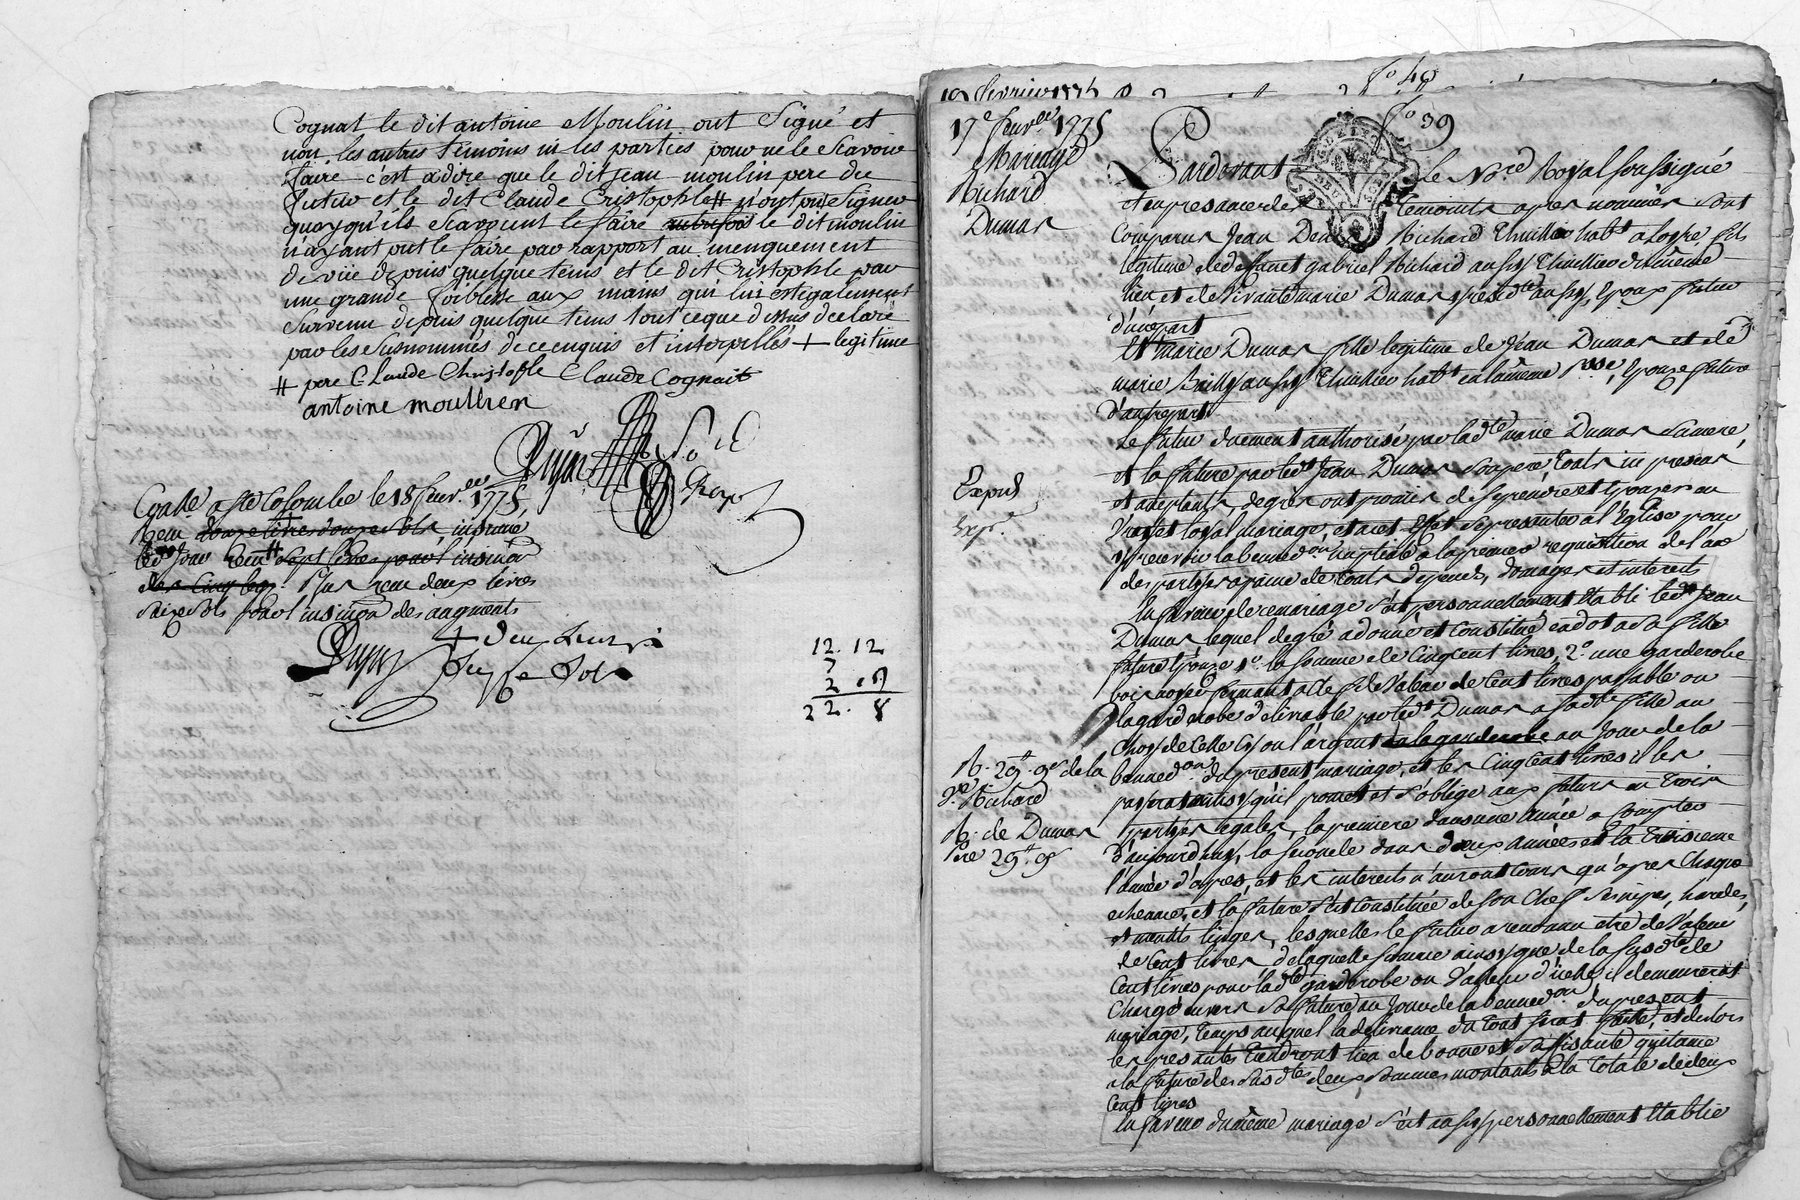 Cognat le dit antoine Moulin ont Signé et
non les autres temoins ni les parties pour ne le Scavoir
faire c'est adire que le dit jean moulin pere du
futur et le dit Claude Cristophle # n'ont pu Signer
quoyqu'ils Scavent le faire autrefois le dit moulin
n'ayant put le faire par rapport au menquement
de vüe depuis quelque tems et le dit Cristophle par
une grande foiblesse aux mains qui lui est egalement
Survenu depuis quelque tems tout ceque dessus declaré
par les Susnommés de ce enquis et interpellés + legitime
# pere Claude Christofle Claude Cognait
antoine moullien
Conllé a Ste Colombe le 18 fevr. 1775
Reçu douze livres douze sols,
Sept livres pour l'insinuon
plus reçu deux livres
Seize sols pour l'insinuon des augments
12. 12
7
2
22. 8
fo 40
19 fevrier 1775
fo 39
17e fevrer 1775
Mariage
Richard
Dumas
Pardevant le No.re Royal soussigné
et en presance des temoins apres nommés sont
comparus Jean Richard habt a fils
legitime de deffunt gabriel Richard aussy dumême
lieu et de vivante marie Dumas aussy, Epoux futur
d'unepart
Et marie Dumas fille legitime de Jean Dumas et de
marie aussy habt en la même psse, Epouze future
d'autrepart
Le futur duement authorisé par la dte marie Dumas Sa mere,
et la future par ledt Jean Dumas Son pere, touts icy presens
et acceptants, degrés ont promis de se prendre et Epouzer en
vray et loyal mariage, et a cet effet se presenter a l'Eglise pour
y recevoir la benedon nuptiale a la premiere requisition de l'une
des parties a peine de touts depends, domages et interets
En faveur de ce mariage s'est personnellement Etabli ledt Jean
Dumas lequel degré a donné et constitué en dot a sa fille
future Epouze 1o la somme de Cinq cent livres, 2o une garderobe
bois noyer fermant a Clef de valeur de Cent livres payable ou
la garderobe delivrable par ledt Dumas a sa dte fille au
Choix de Celle Cy ou l'argent ou la garderobe au Jour de la
benedon du present mariage, et les Cinq Cent livres il les
qu'il promet et s'oblige aux futurs en trois
parties egales, la premiere dans une année a compter
d'aujourd'huy, la seconde dans deux années et la troisieme
l'année d'apres, et les interets n'auront cours qu'apres Chaque
echeance, et la future s'est constituée de son Chef Ses nipes, hardes,
et menüs linges, lesquelles le futur a reconnu etre de valeur
de Cent livres de laquelle Somme ainsy que de la susdte de
Cent livres pour ladte garderobe ou valeur d'icelle il demeurerat
Chargé envers Sa future au Jour de la benedon du present
mariage, temps auquel la delivrance du tout Serat faite, et deslors
les presantes tiendront lieu de bonne et suffisante quitance
a la future des susdtes deux Sommes montant a la totale de deux
Cent livres
En faveur du même mariage s'est aussy personnellement Etablie
Exped
de la
Richard
de Dumas